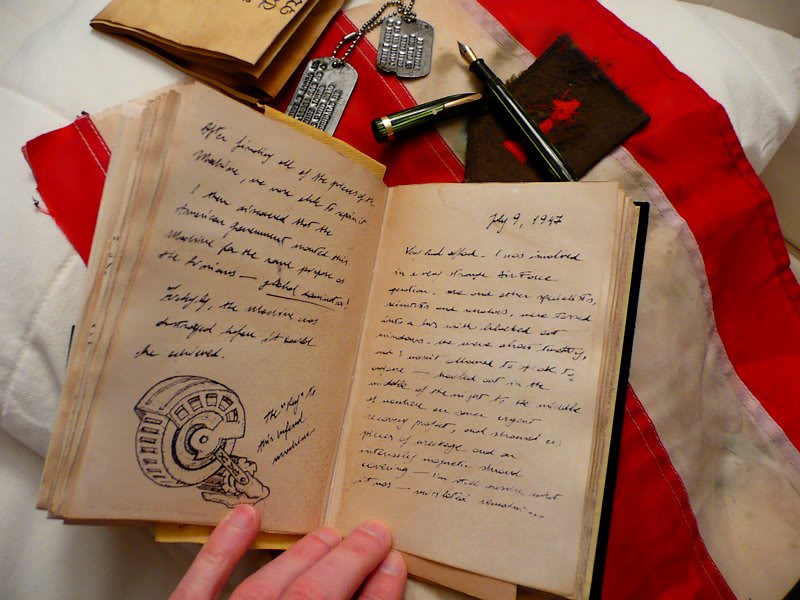 After finding all of the pieces of the
Machine, we were able to repair it
I then discovered that the
American government wanted this
Machine for the same purpose as
the Russians — global domination!
Luckily, the Machine was
destroyed before it could
be achieved.
the "key" to
this infernal
machine
July 9, 1947
I was involved
in a very strange Air Force
operation - me and other specialists,
scientists and were tossed
into a bus with blacked out
windows. We were about twenty,
not I wasn't allowed to speak to
anyone — hauled out in the
middle of the night to the middle
of nowhere on some urgent
recovery project, and showed us
pieces of wreckage and an
intensely magnetic shroud
covering — I'm still unsure what
it was — mutilated remains...